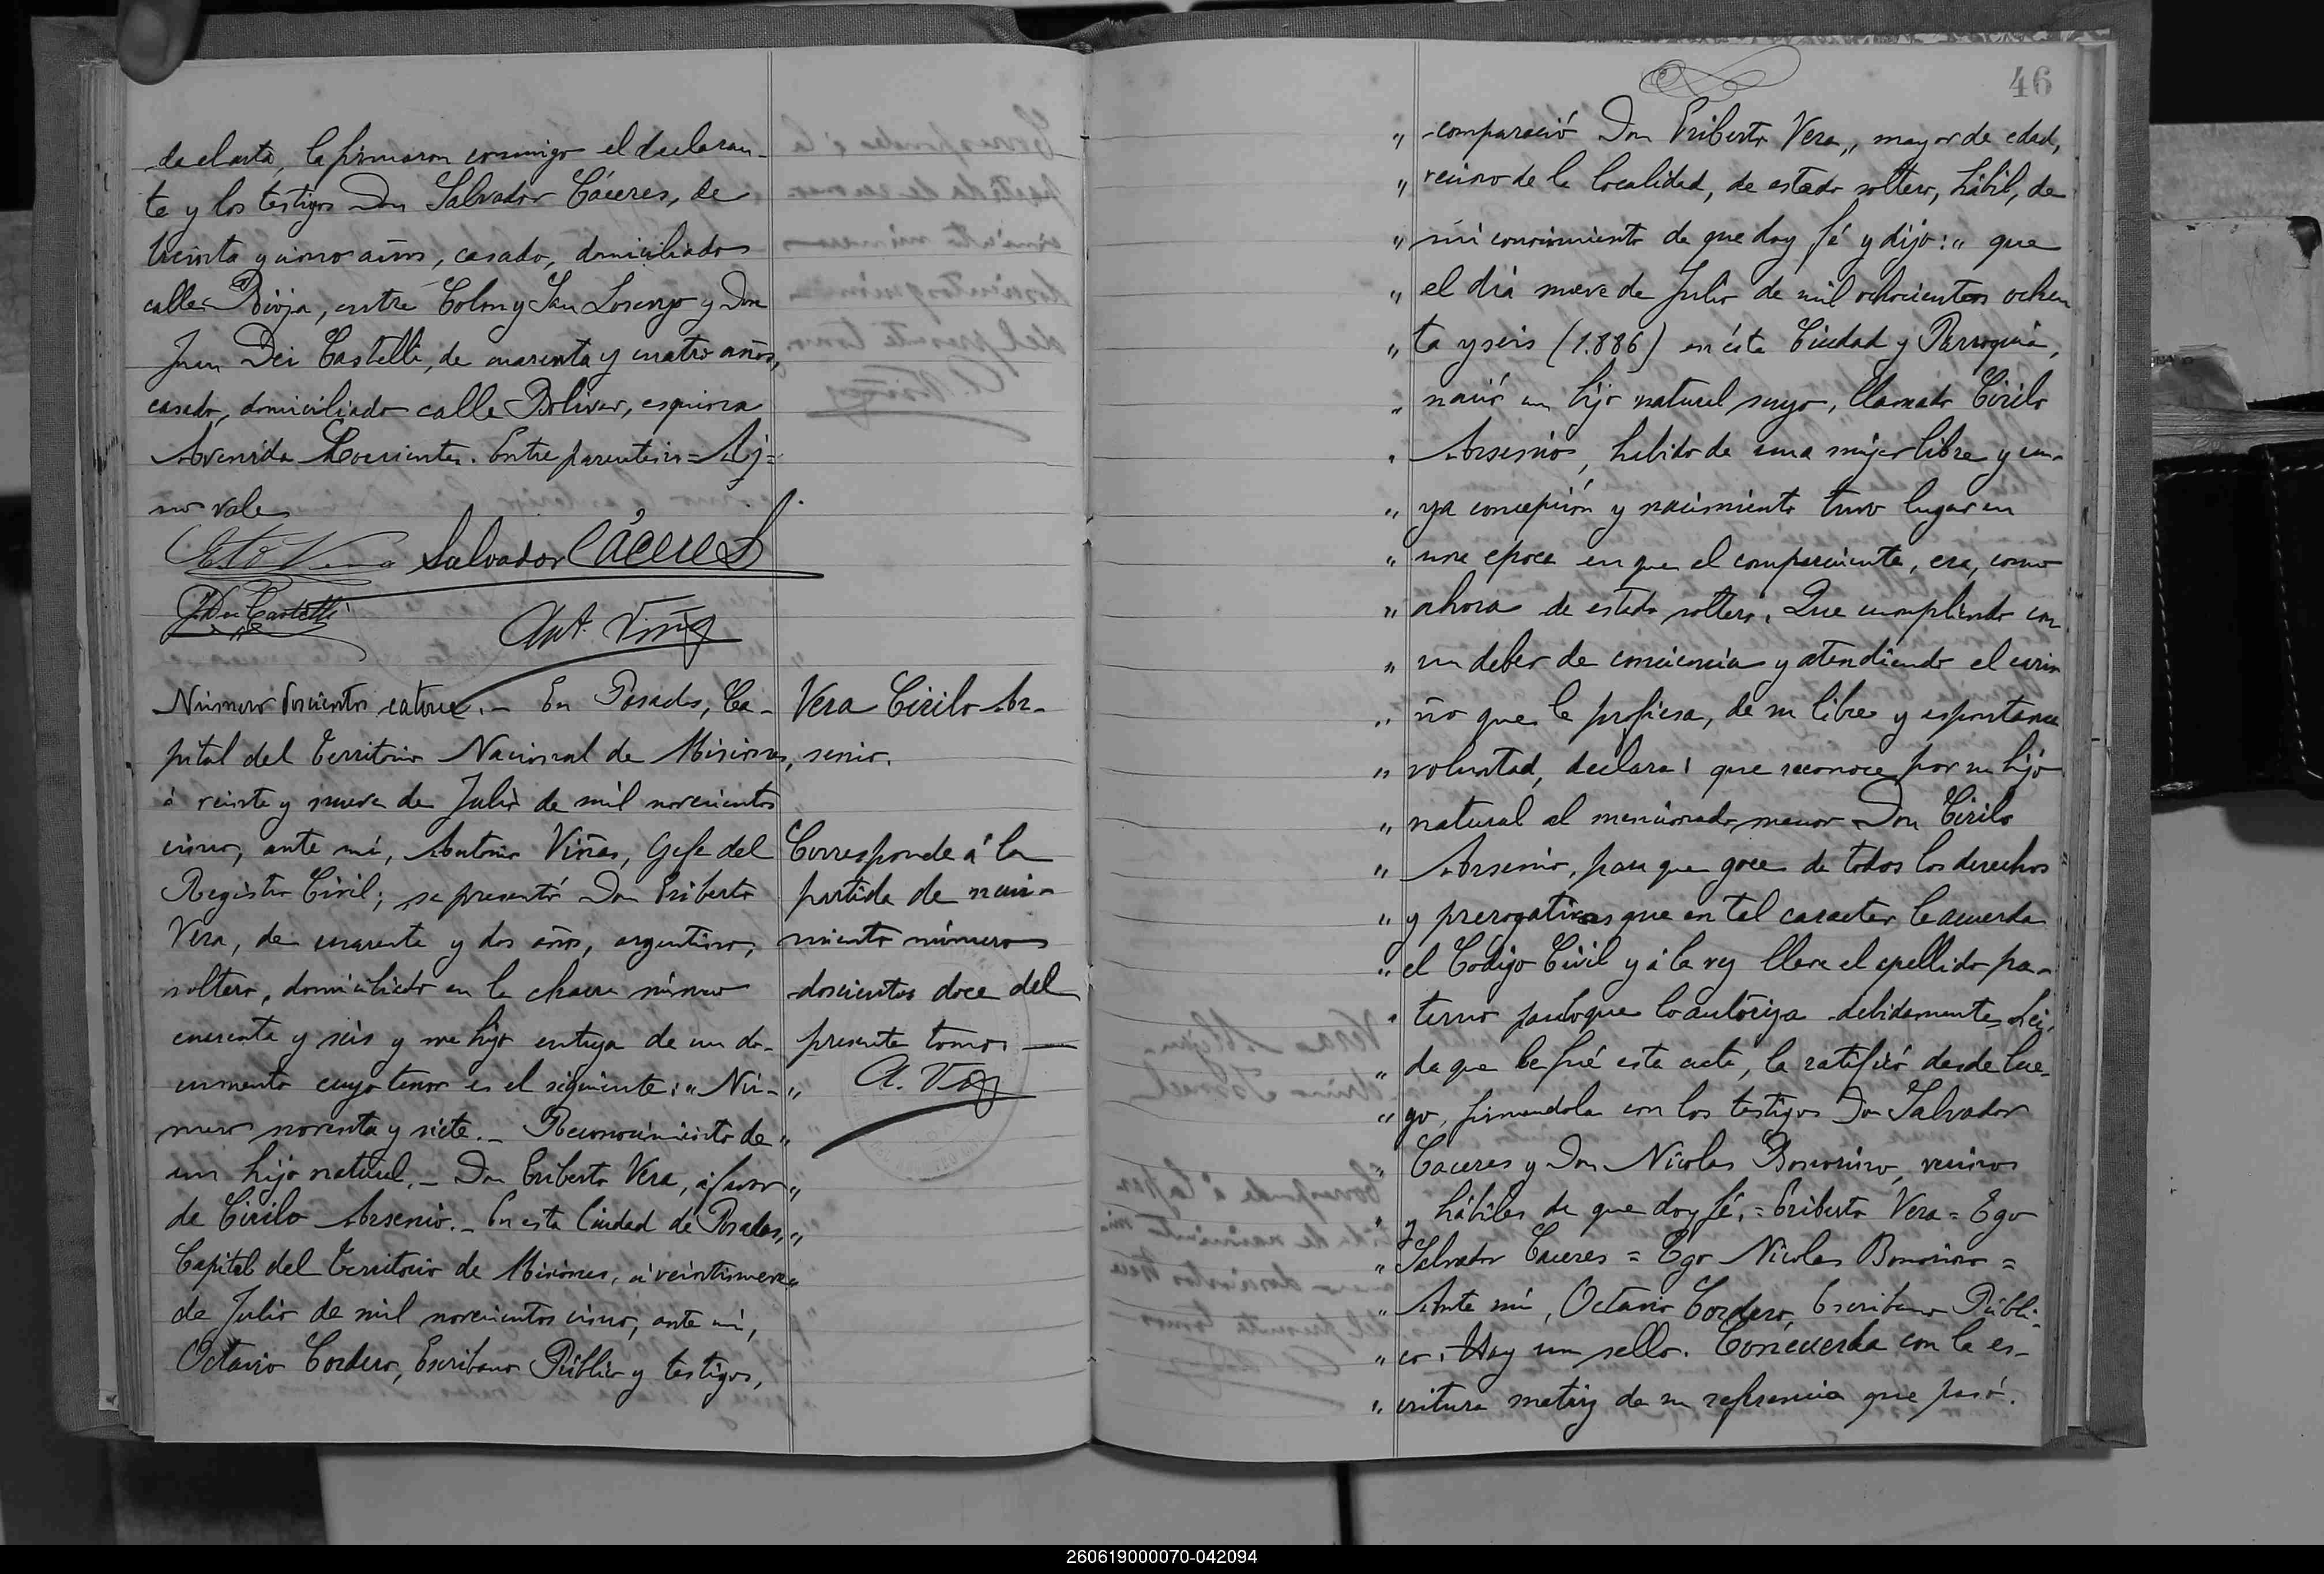 da el acta, la firmaron conmigo el declaran-
te y los testigos Don Salvador Cáceres, de
treinta y cinco años, casado, domiciliado
calle Rioja, entre Colon y San Lorenzo y Don
Juan Dei Castelli, de cuarenta y cuatro años,
casado, domiciliado calle Bolivar, esquina
Avenida Corrientes. Entre parentesis =
no vale
Salvador Cáceres
J. Dei Castelli
Ant. Viñas
Número doscientos catorce. - En Posadas, Ca-
pital del Territorio Nacional de Misiones,
á veinte y nueve de Julio de mil novecientos
cinco, ante mí, Antonio Viñas, Gefe del
Registro Civil; se presentó Don Eriberto
Vera, de cuarenta y dos años, argentino,
soltero, domiciliado en la chacra número
cuarenta y seis y me hizo entrega de un do-
cumento cuyo tenor es el siguiente: " Nú- "
mero noventa y siete. - Reconocimiento de "
un hijo natural. - Don Eriberto Vera, á favor "
de Cirilo Arsenio. - En esta Ciudad de Posadas, "
Capital del Territorio de Misiones, á veintinueve "
de Julio de mil novecientos cinco, ante mí,
Octavio Cordero, Escribano Público y testigos,
Vera Cirilo Ar-
senio.
Corresponde á la
partida de naci-
miento número
doscientos doce del
presente tomo. —
A. Viñas
46
" comparació Don Eriberto Vera, mayor de edad,
" vecino de la localidad, de estado soltero, hábil, de
" mi conocimiento de que doy fé y dijo: " que
" el dia nueve de Julio de mil ochocientos ochen
" ta y seis (1.886) en ésta Ciudad y Parroquia,
" nació un hijo natural suyo, llamado Cirilo
" Arsenio, habido de una mujer libre y cu-
" ya concepción y nacimiento tuvo lugar en
" una epoca en que el compareciente, era, como
" ahora de estado soltero. Que cumpliendo con
" un deber de conciencia y atendiendo el cari
" ño que le profiesa, de su libre y espontanea
" voluntad, declara: que reconoce por su hijo
" natural al mencionado menor Don Cirilo
" Arsenio, para que goce de todos los derechos
" y prerogativas que en tal caracter le acuerda
" el Codigo Civil y á la vez lleve el apellido pa-
" terno para lo que lo autoriza debidamente. Lei-
" da que le fué esta acta, la ratificó desde lue-
" go, firmandola con los testigos Don Salvador
" Caceres y Don Nicolas Bonorino, vecinos
" y hábiles de que doy fé. = Eriberto Vera = Tgo
" Salvador Caceres = Tgo Nicolas Bonorino =
" Ante mí, Octavio Cordero, Escribano Públi-
" co. Hay un sello. Concuerda con la es-
" critura matriz de su referencia que pasó.
260619000070-042094